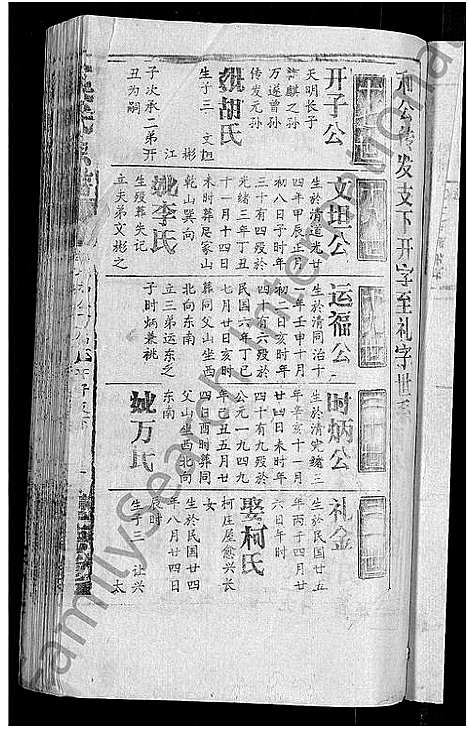 和公传发支下开字至礼字世系
开子公
天明长子
麒之孙
万遂曾孙
传发元孙
妣胡氏
生子三 文坦
彬
江
子次承二弟开
丑为嗣
文坦公
生於清道光廿
四年甲辰正月
初八日子时年
三十有四殁於
光绪三年丁丑
十一月十四日
未时葬尼冢山
乾山巽向
妣李氏
生殁葬失记
立天弟文彬之
运福公
生於清同治十
一年壬申十月
初二日亥时年
四十有六殁於
民国六年丁巳
七月廿日亥时
葬同父山坐西
北向东南
立三弟运东之
子时炳兼祧
时炳公
生於清光绪三
年辛亥十一月
廿四日未时年
四十有九殁於
公元一九四九
年己丑五月廿
四日酉时葬同
父山坐西北向
东南
妣万氏
礼金
生於民国廿五
年丙子四月廿
六日午时
娶柯氏
柯庄屋愈兴长
女
生於民国廿四
年八月廿四日
辰时
生子三 让兴
太
FamilySearch International